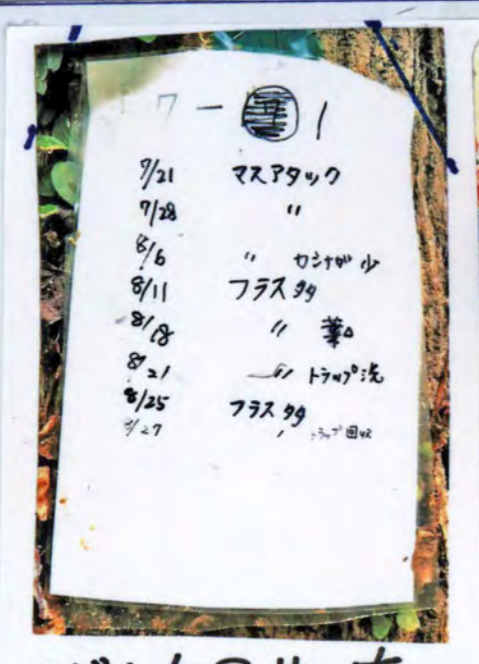 7-1
7/21 マスアタック
7/28 〃
8/6 〃 カシナガ少
8/11 フラス多
8/18 〃
8/21 〃 トラップ洗
8/25 フラス多
8/27 〃 トラップ回収